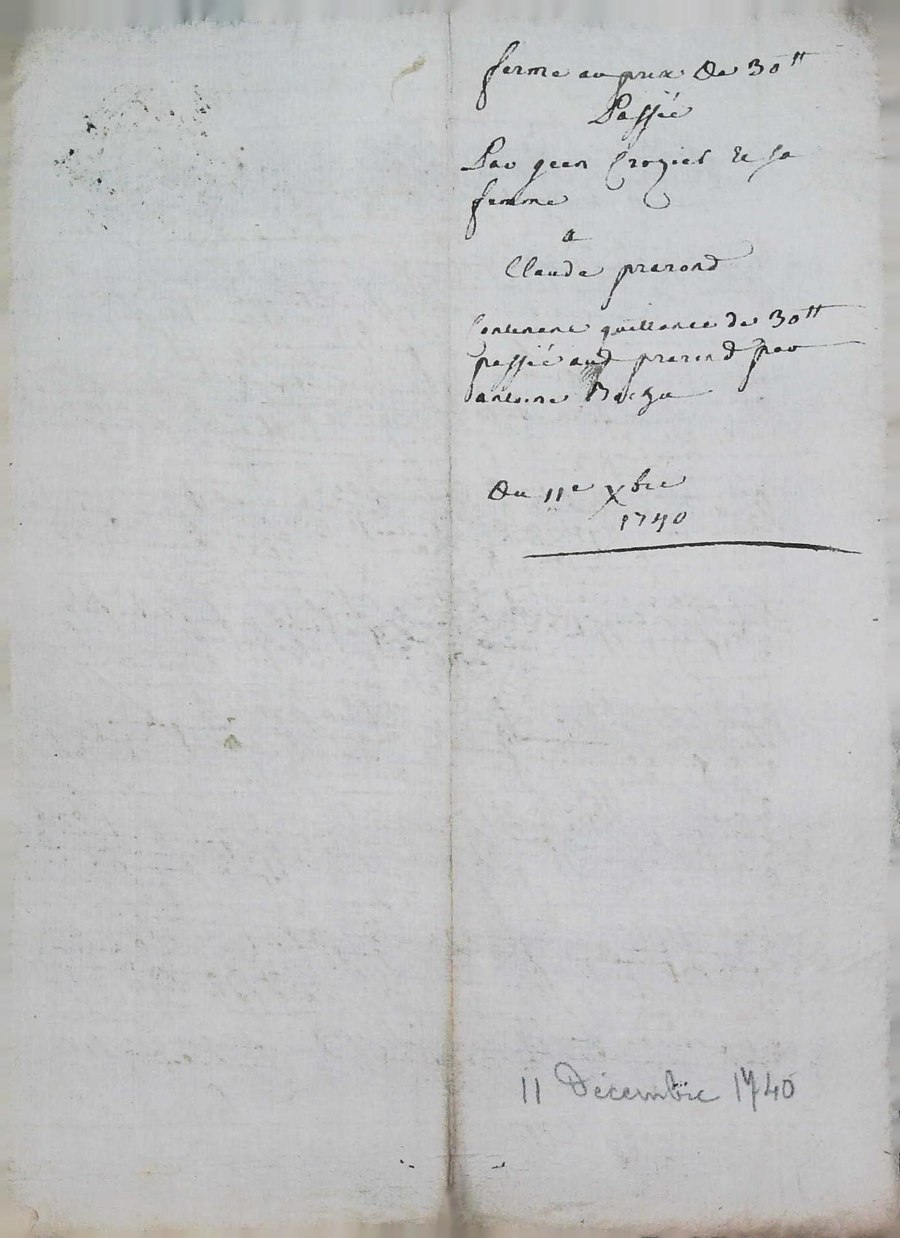 ferme au prix de 30tt
Passée
Par jean Crozier et sa
femme
a
Claude prarond
Contenant quittance de 30tt
passée aud prarond par
antoine
Du 11e Xbre
1740
11 Décembre 1740